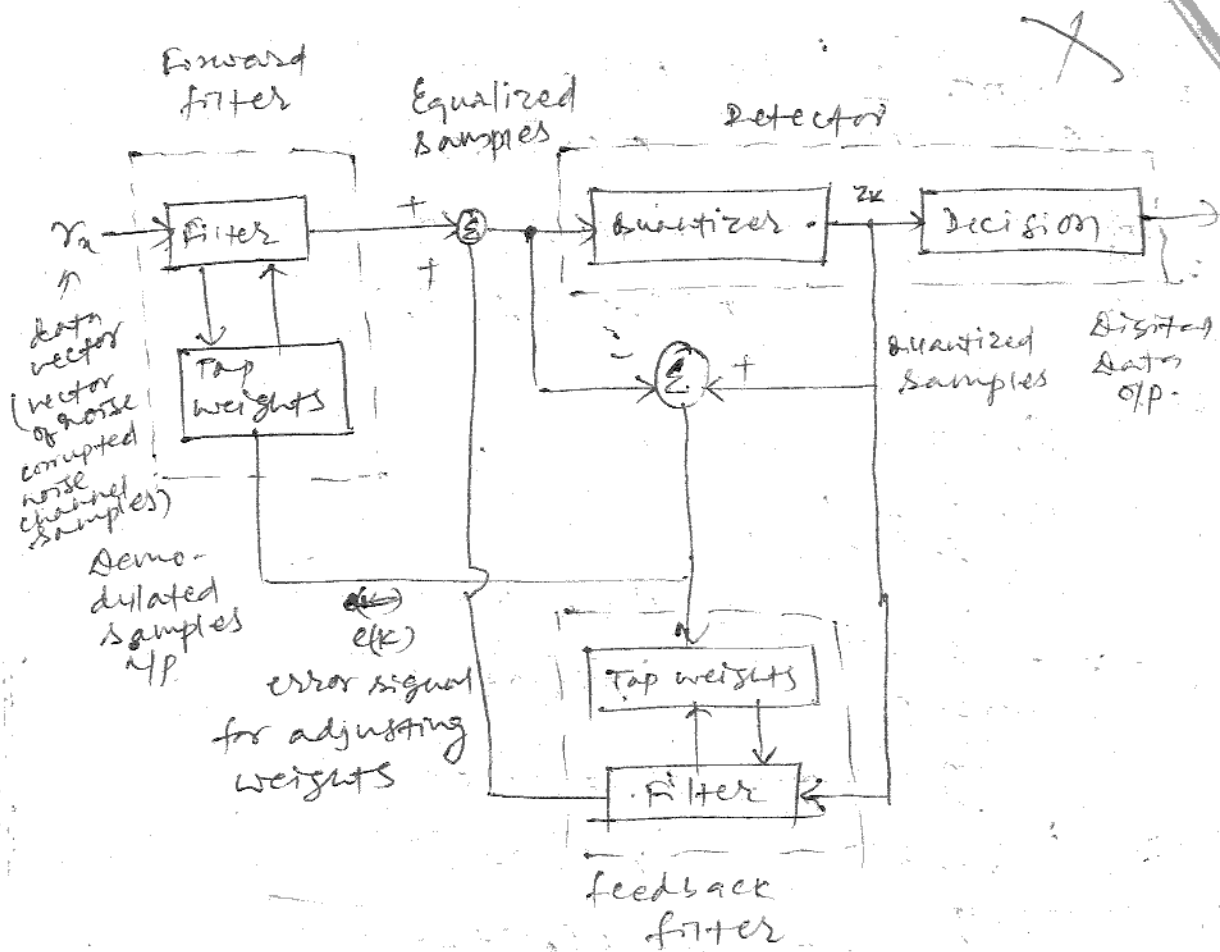 Forward
filter
Equalized
samples
Detector
+
Σ
+
Filter
Quantizer
zk
Decision
rx
data
vector
(vector
of noise
corrupted
noise
channel
samples)
Tap
weights
-
Σ
+
Quantized
samples
Digital
Data
o/p.
Demo-
dulated
samples
i/p
e(k)
error signal
for adjusting
weights
Tap weights
Filter
feedback
filter